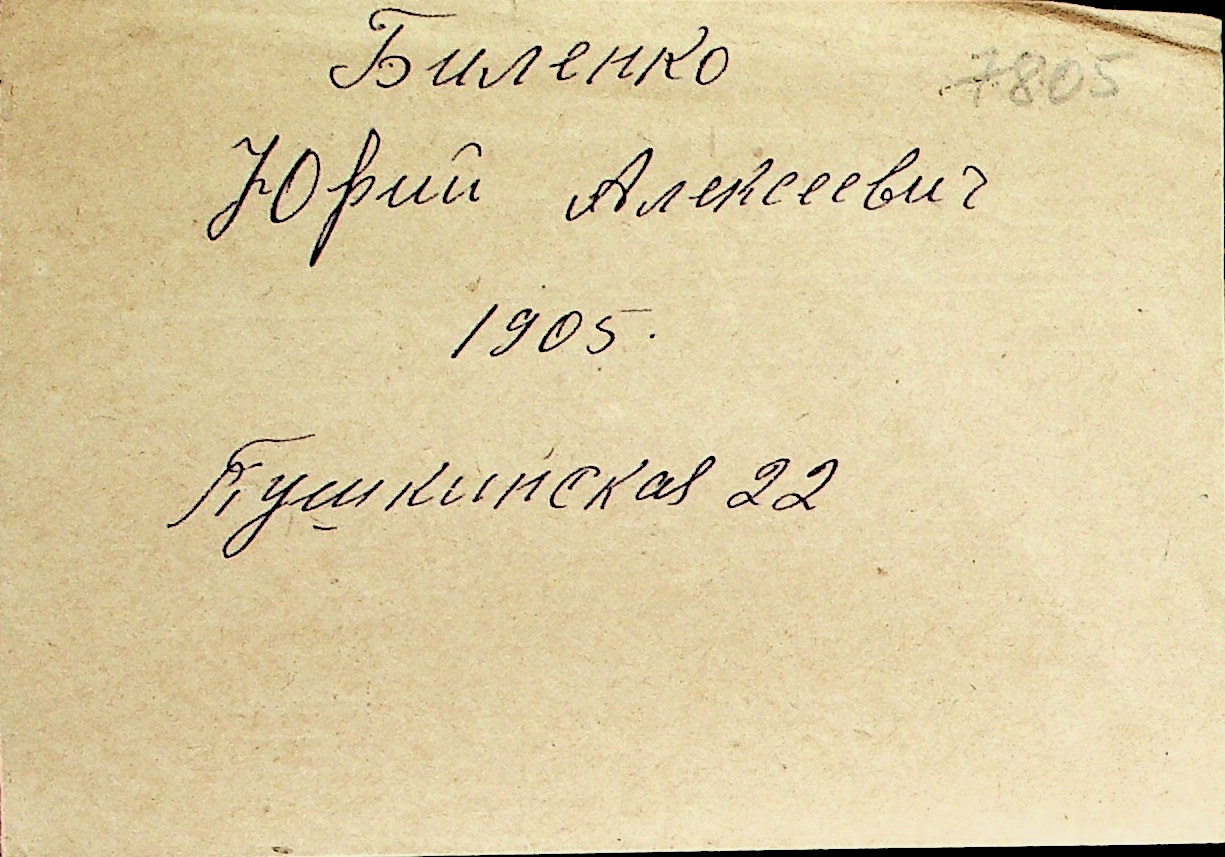 Биленко
7805
Юрий Алексеевич
1905.
Пушкинская 22